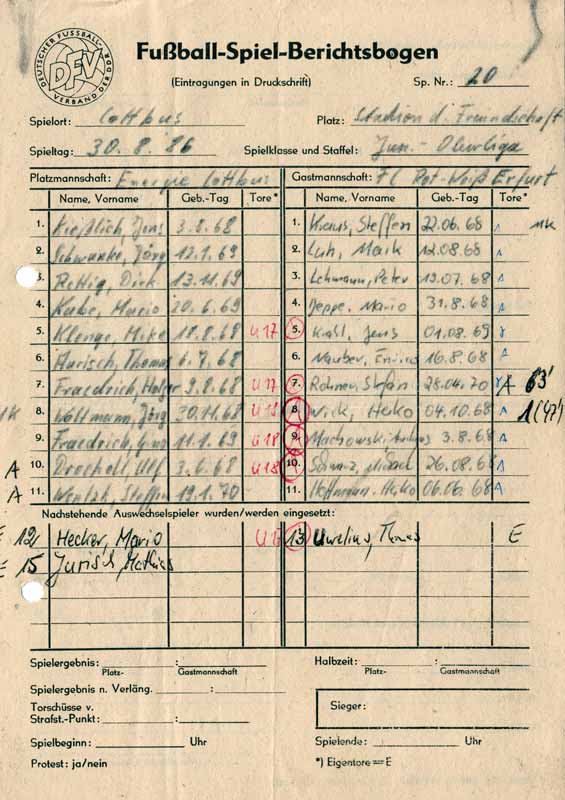 DEUTSCHER FUSSBALL-VERBAND DER DDR
DFV
Fußball-Spiel-Berichtsbogen
(Eintragungen in Druckschrift)
Sp. Nr.: 20
Spielort: Cottbus Platz: Stadion d. Freundschaft
Spieltag: 30. 8. 86 Spielklasse und Staffel: Jun.- Oberliga
Platzmannschaft: Energie Cottbus Gastmannschaft: FC Rot-Weiß Erfurt
Name, Vorname Geb.-Tag Tore* Name, Vorname Geb.-Tag Tore*
1. Kießlich, Jens 3.8.68 1. Kraus, Steffen 22.06.68
2. Schwanke, Jörg 12.1.69 2. Luh, Maik 12.08.68
3. Rettig, Dirk 13.11.69 3. Lehmann, Peter 19.07.68
4. Kube, Mario 20.6.69 4. Jeppe, Mario 31.8.68
5. Klenge, Mike 18.8.69 U17 5. Jens 01.08.69
6. Jurisch, Thomas 6.7.68 6. 16.8.68
7. Friedrich, Holger 9.8.68 U17 7. Stefan 28.04.70 A 63'
8. Wottmann, Jörg 30.11.68 U18 8. Wick, Heiko 04.10.68 1(47')
9. Friedrich, 11.1.69 U18 9. Machowski, 3.8.68
A 10. Drochell, Ulf 3.6.68 U18 10. 26.08.68
A 11. Steffen 19.1.70 11. Hoffmann, Heiko 06.06.68
Nachstehende Auswechselspieler wurden/werden eingesetzt:
E 12, Hecker, Mario U17 13 Aurelius, Thomas E
E 15 Jurisch, Mathias
Spielergebnis: : Halbzeit: :
Platz- Gastmannschaft Platz- Gastmannschaft
Spielergebnis n. Verläng. :
Torschüsse v.
Strafst.-Punkt: :
Sieger:
Spielbeginn: Uhr Spielende: Uhr
Protest: ja/nein *) Eigentore = E